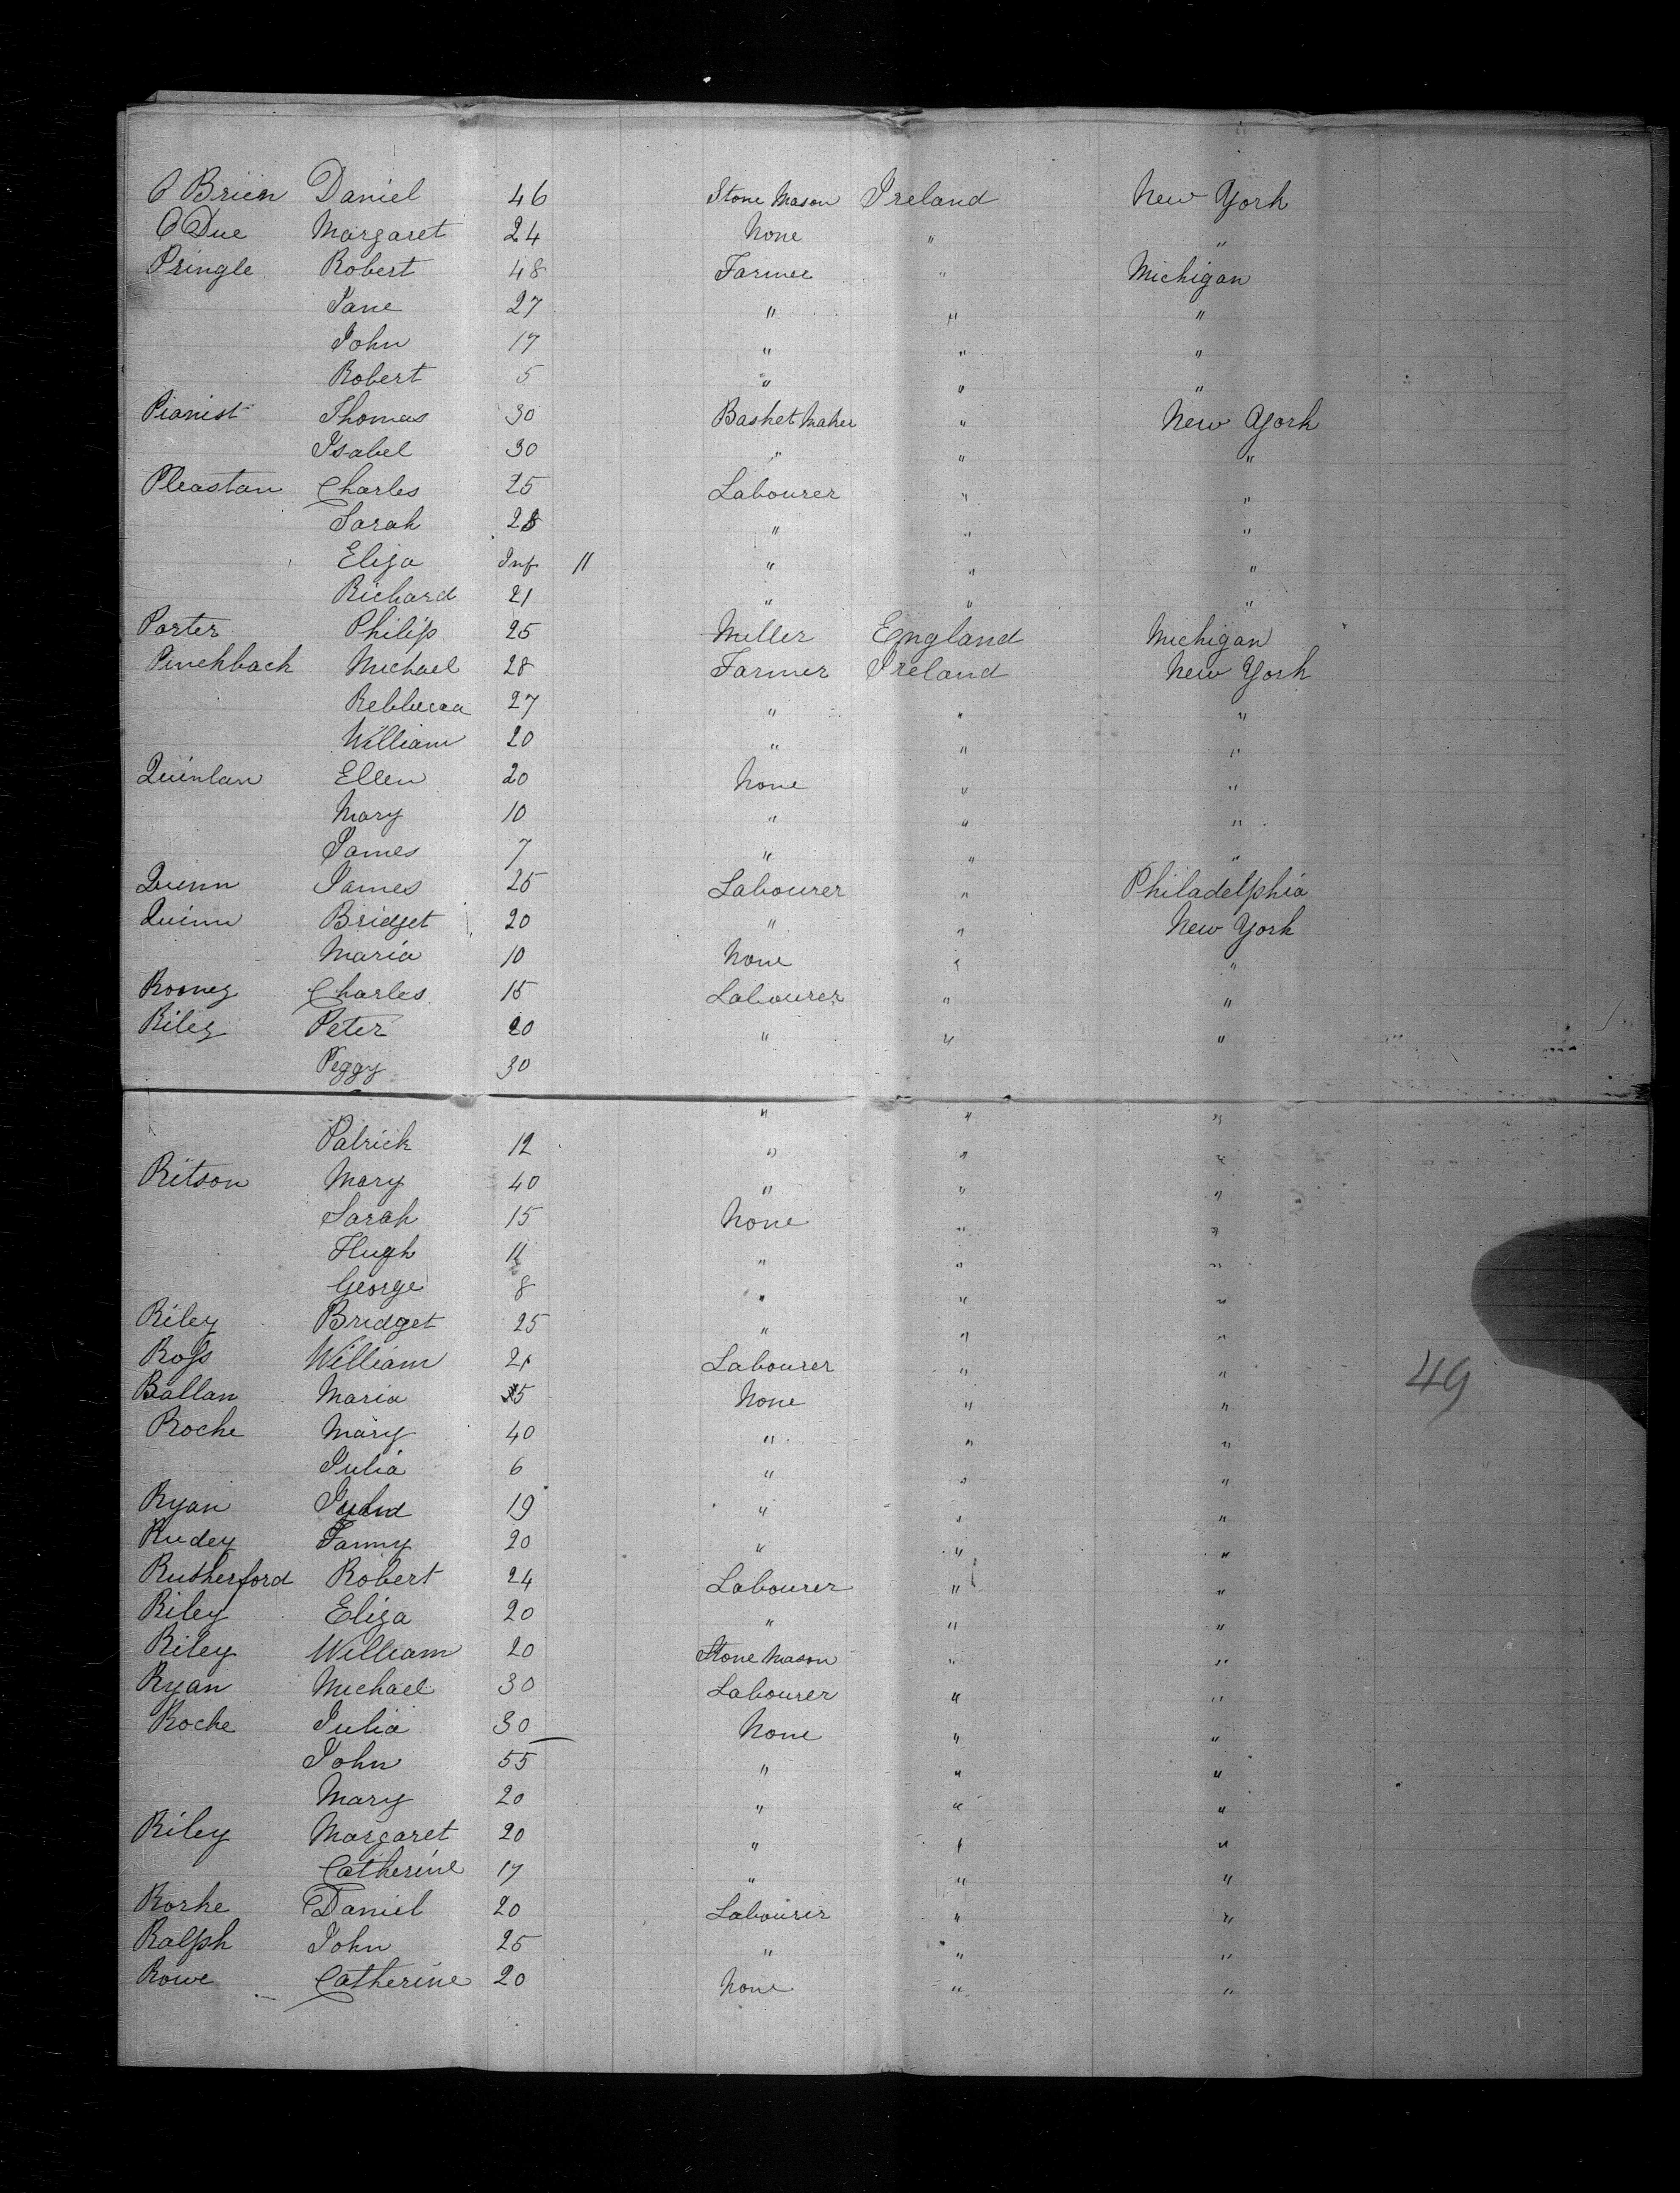 O Brien Daniel 46 Stone Mason Ireland New York
O Due Margaret 24 None " "
Pringle Robert 48 Farmer " Michigan
Jane 27 " " "
John 17 " " "
Robert 5 " " "
Pianist Thomas 30 Basket Maker " New York
Isabel 30 " " "
Pleastan Charles 25 Labourer " "
Sarah 28 " " "
Eliza Inf 11 " " "
Richard 21 " " "
Porter Philip 25 Miller England Michigan
Pinchback Michael 28 Farmer Ireland New York
Rebbecca 27 " " "
William 20 " " "
Quinlan Ellen 20 None " "
Mary 10 " " "
James 7 " " "
Quinn James 25 Labourer " Philadelphia
Quinn Bridget 20 " " New York
Maria 10 None " "
Rooney Charles 15 Labourer " "
Riley Peter 20 " " "
Peggy 30
" " "
Patrick 12 " " "
Ritson Mary 40 " " "
Sarah 15 None " "
Hugh 11 " " "
George 8 " " "
Riley Bridget 25 " " "
Ross William 21 Labourer " "
Ballan Maria None " "
Roche Mary 40 " " "
Julia 6 " " "
Ryan 19 " " "
Rudey Fanny 20 " " "
Rutherford Robert 24 Labourer " "
Riley Eliza 20 " " "
Riley William 20 Stone Mason " "
Ryan Michael 30 Labourer " "
Roche Julia 30 None " "
John 55 " " "
Mary 20 " " "
Riley Margaret 20 " " "
Catherine 17 " " "
Rorke Daniel 20 Labourer " "
Ralph John 25 " " "
Rowe Catherine 20 None " "
49